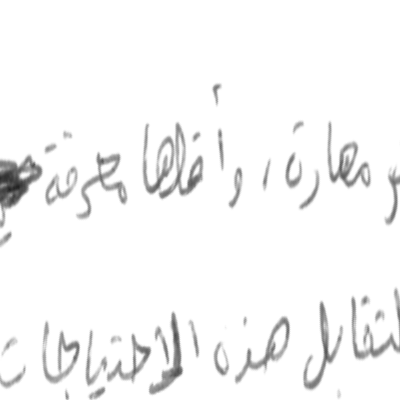 و مهارة، وأقلها معرفة
لتقابل هذه الاحتياجات